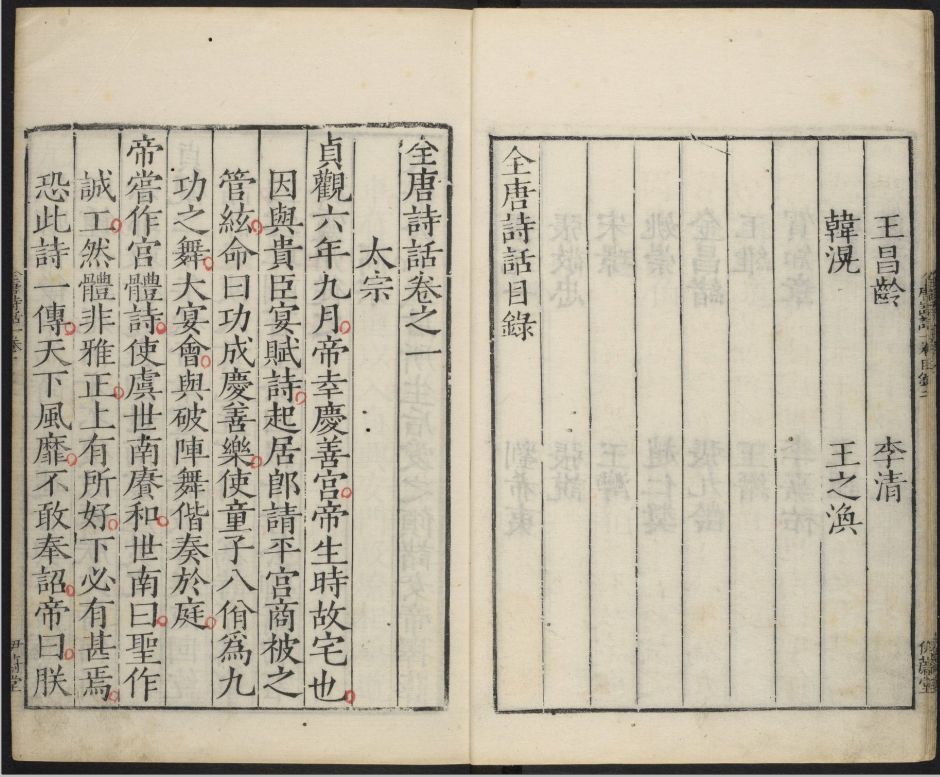 王昌齡 李清
韓滉 王之渙
全唐詩話目錄
全唐詩話卷之一
太宗
貞觀六年九月帝幸慶善宮帝生時故宅也
因與貴臣宴賦詩起居郎請平宮商被之
管絃命曰功成慶善樂使童子八佾爲九
功之舞大宴會與破陣舞偕奏於庭
帝嘗作宮體詩使虞世南賡和世南曰聖作
誠工然體非雅正上有所好下必有甚焉
恐此詩一傳天下風靡不敢奉詔帝曰朕